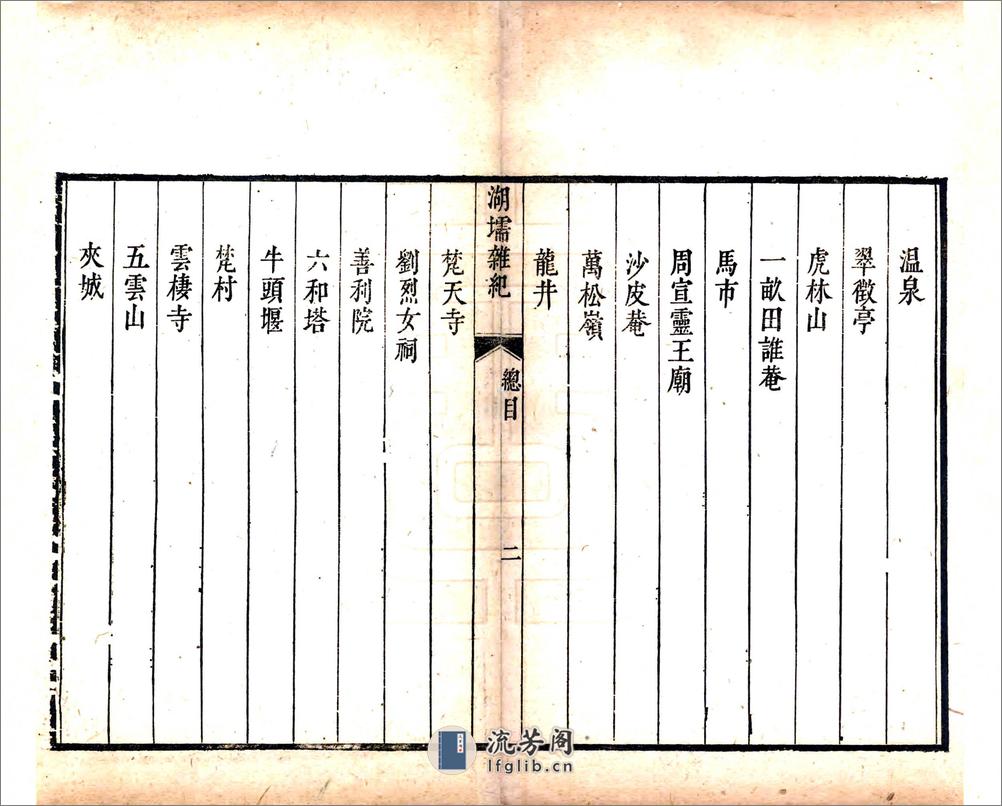 温泉
翠微亭
虎林山
一畝田誰菴
馬市
周宣靈王廟
沙皮菴
萬松嶺
龍井
湖壖雜紀
總目
二
梵天寺
劉烈女祠
善利院
六和塔
牛頭堰
梵村
雲棲寺
五雲山
夾城
流芳阁
lfglib.cn